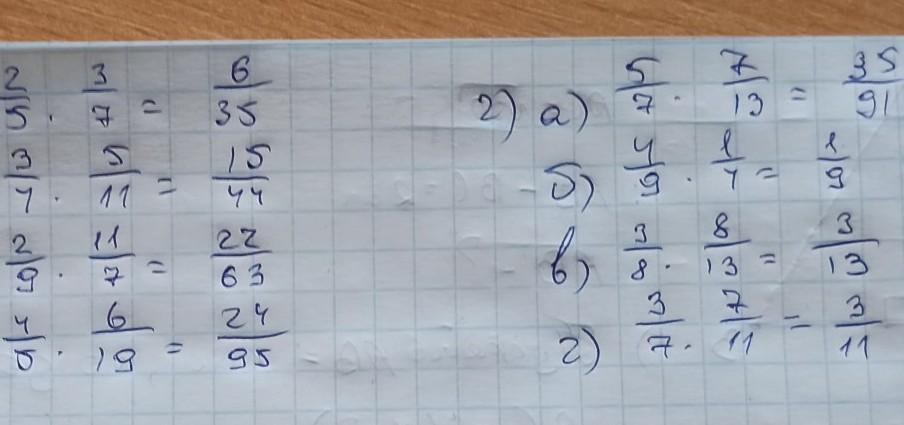 2/5 · 3/7 = 6/35
3/4 · 5/11 = 15/44
2/9 · 11/7 = 22/63
4/5 · 6/19 = 24/95
2) а) 5/7 · 7/13 = 35/91
б) 4/9 · 1/4 = 1/9
в) 3/8 · 8/13 = 3/13
г) 3/7 · 7/11 = 3/11